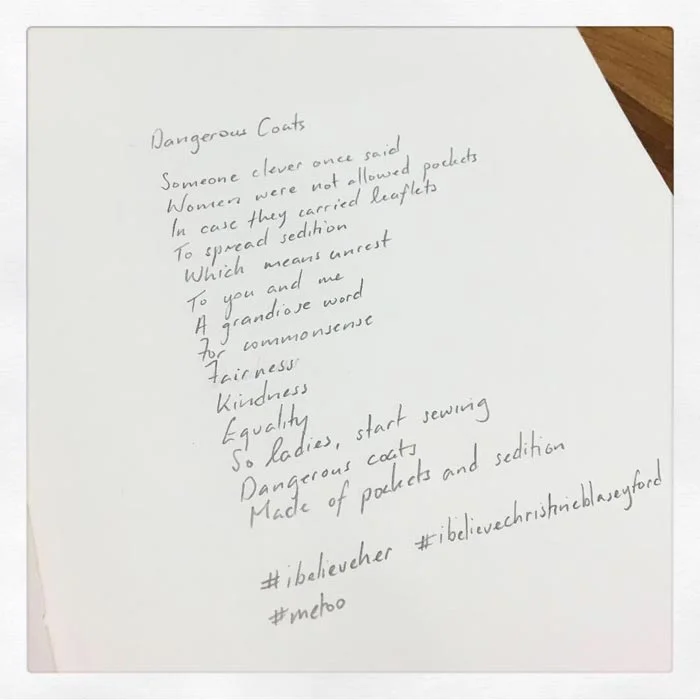 Dangerous Coats
Someone clever once said
Women were not allowed pockets
In case they carried leaflets
To spread sedition
Which means unrest
To you and me
A grandiose word
For commonsense
Fairness
Kindness
Equality
So ladies, start sewing
Dangerous coats
Made of pockets and sedition
#ibelieveher #ibelievechristineblaseyford
#metoo